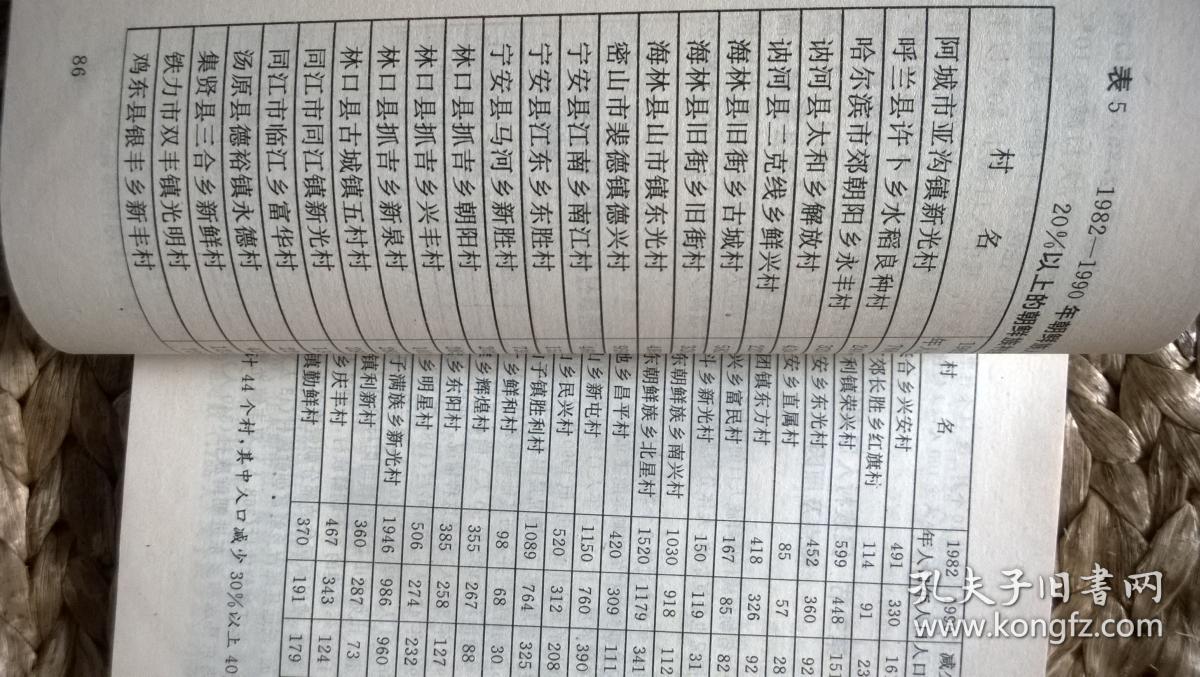 表5 1982—1990年朝鲜
20%以上的朝鲜族村
村 名
阿城市亚沟镇新光村
呼兰县许卜乡水稻良种村
哈尔滨市郊朝阳乡永丰村
讷河县太和乡解放村
讷河县二克线乡鲜兴村
海林县旧街乡古城村
海林县旧街乡旧街村
海林县山市镇东光村
密山市裴德镇德兴村
宁安县江南乡南江村
宁安县江东乡东胜村
宁安县马河乡新胜村
林口县抓吉乡朝阳村
林口县抓吉乡兴丰村
林口县抓吉乡新泉村
林口县古城镇五村村
同江市同江镇新光村
同江市临江乡富华村
汤原县德裕镇永德村
集贤县三合乡新鲜村
铁力市双丰镇光明村
鸡东县银丰乡新丰村
86
村 名 1982年人
合乡兴安村 491 330 16
郊长胜乡红旗村 114 91 23
利镇荣兴村 599 448 151
安乡东光村 452 360 92
安乡直属村 85 57 28
团镇东方村 418 326 92
兴乡富民村 167 85 82
斗乡新光村 150 119 31
东朝鲜族乡南兴村 1030 918 112
东朝鲜族乡北星村 1520 1179 341
乡昌平村 420 309 111
乡新屯村 1150 760 390
乡民兴村 520 312 208
子镇胜利村 1089 764 325
乡鲜和村 98 68 30
乡辉煌村 355 267 88
乡东阳村 385 258 127
乡明星村 506 274 232
子满族乡新光村 1946 986 960
镇利新村 360 287 73
乡庆丰村 467 343 124
镇勤鲜村 370 191 179
计44个村,其中人口减少30%以上 40
孔夫子旧书网
www.kongfz.com